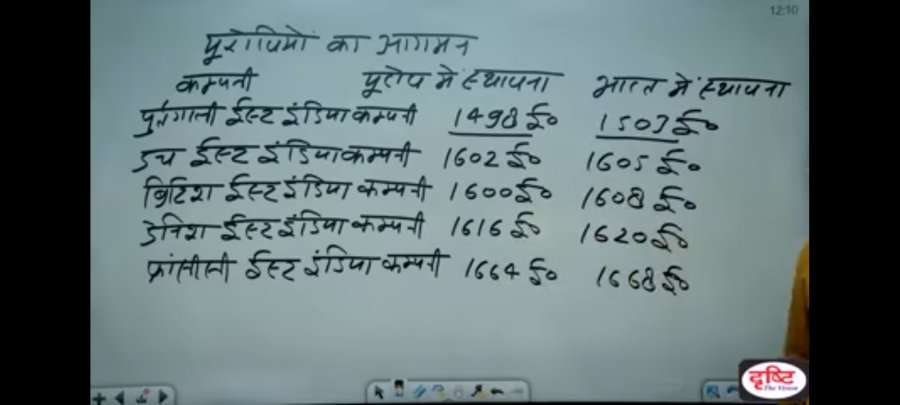 12:10
यूरोपियों का आगमन
कम्पनी यूरोप में स्थापना भारत में स्थापना
पुर्तगाली ईस्ट इंडिया कम्पनी 1498 ई० 1503 ई०
डच ईस्ट इंडिया कम्पनी 1602 ई० 1605 ई०
ब्रिटिश ईस्ट इंडिया कम्पनी 1600 ई० 1608 ई०
डेनिश ईस्ट इंडिया कम्पनी 1616 ई० 1620 ई०
फ्रांसीसी ईस्ट इंडिया कम्पनी 1664 ई० 1668 ई०
दृष्टि
The Vision